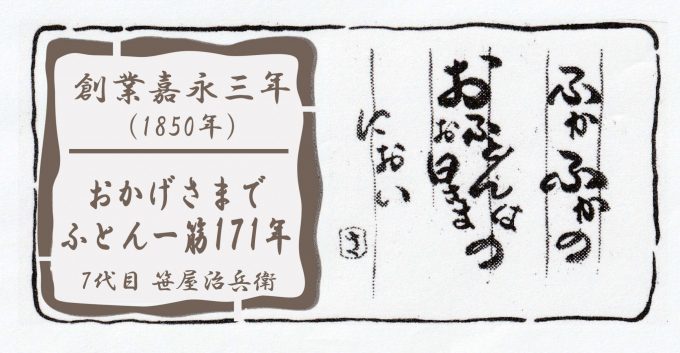 創業嘉永三年
(1850年)
おかげさまで
ふとん一筋171年
7代目 笹屋治兵衛
ふかふかの
おふとんは
お日さまの
におい
さ